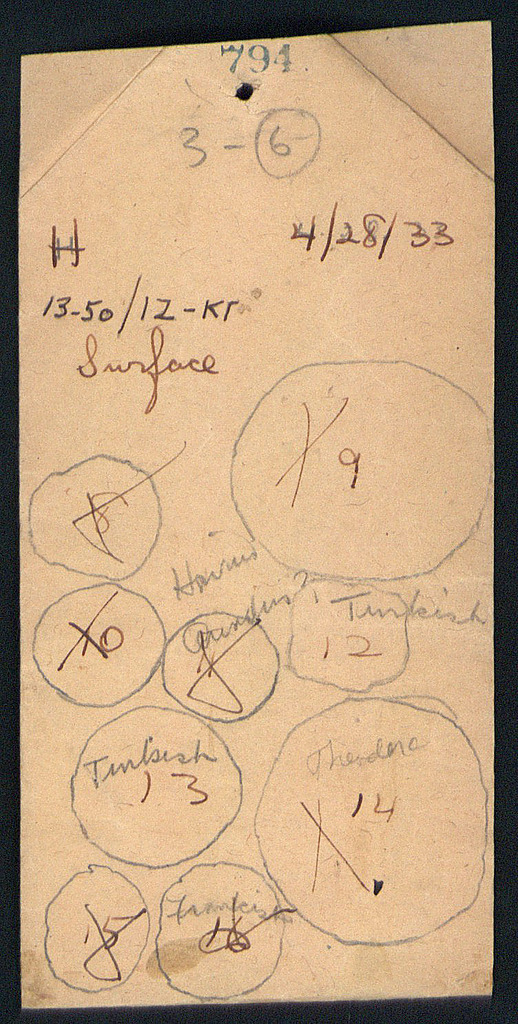 794
3 - 6
H 4/28/33
13-50/12-KT
Surface
9
8
Turkish
10 12
Turkish
13
Theodore
14
15
Frankish
16